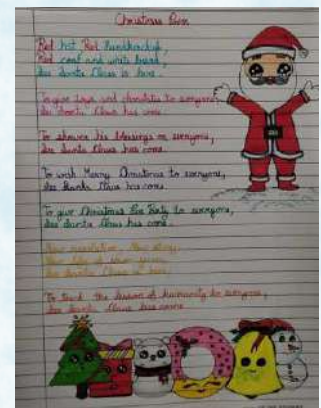 Christmas Poem
Red hat Red Handkerchief,
Red coat and white beard,
See Santa Claus is here.
To give toys and chocolates to everyone,
See Santa Claus has come.
To shower his blessings on everyone,
See Santa Claus has come.
To wish Merry Christmas to everyone,
See Santa Claus has come.
To give Christmas Eve Party to everyone,
See Santa Claus has come.
New resolution, New story,
New
See Santa Claus is here.
To teach the lesson of humanity to everyone,
See Santa Claus has come